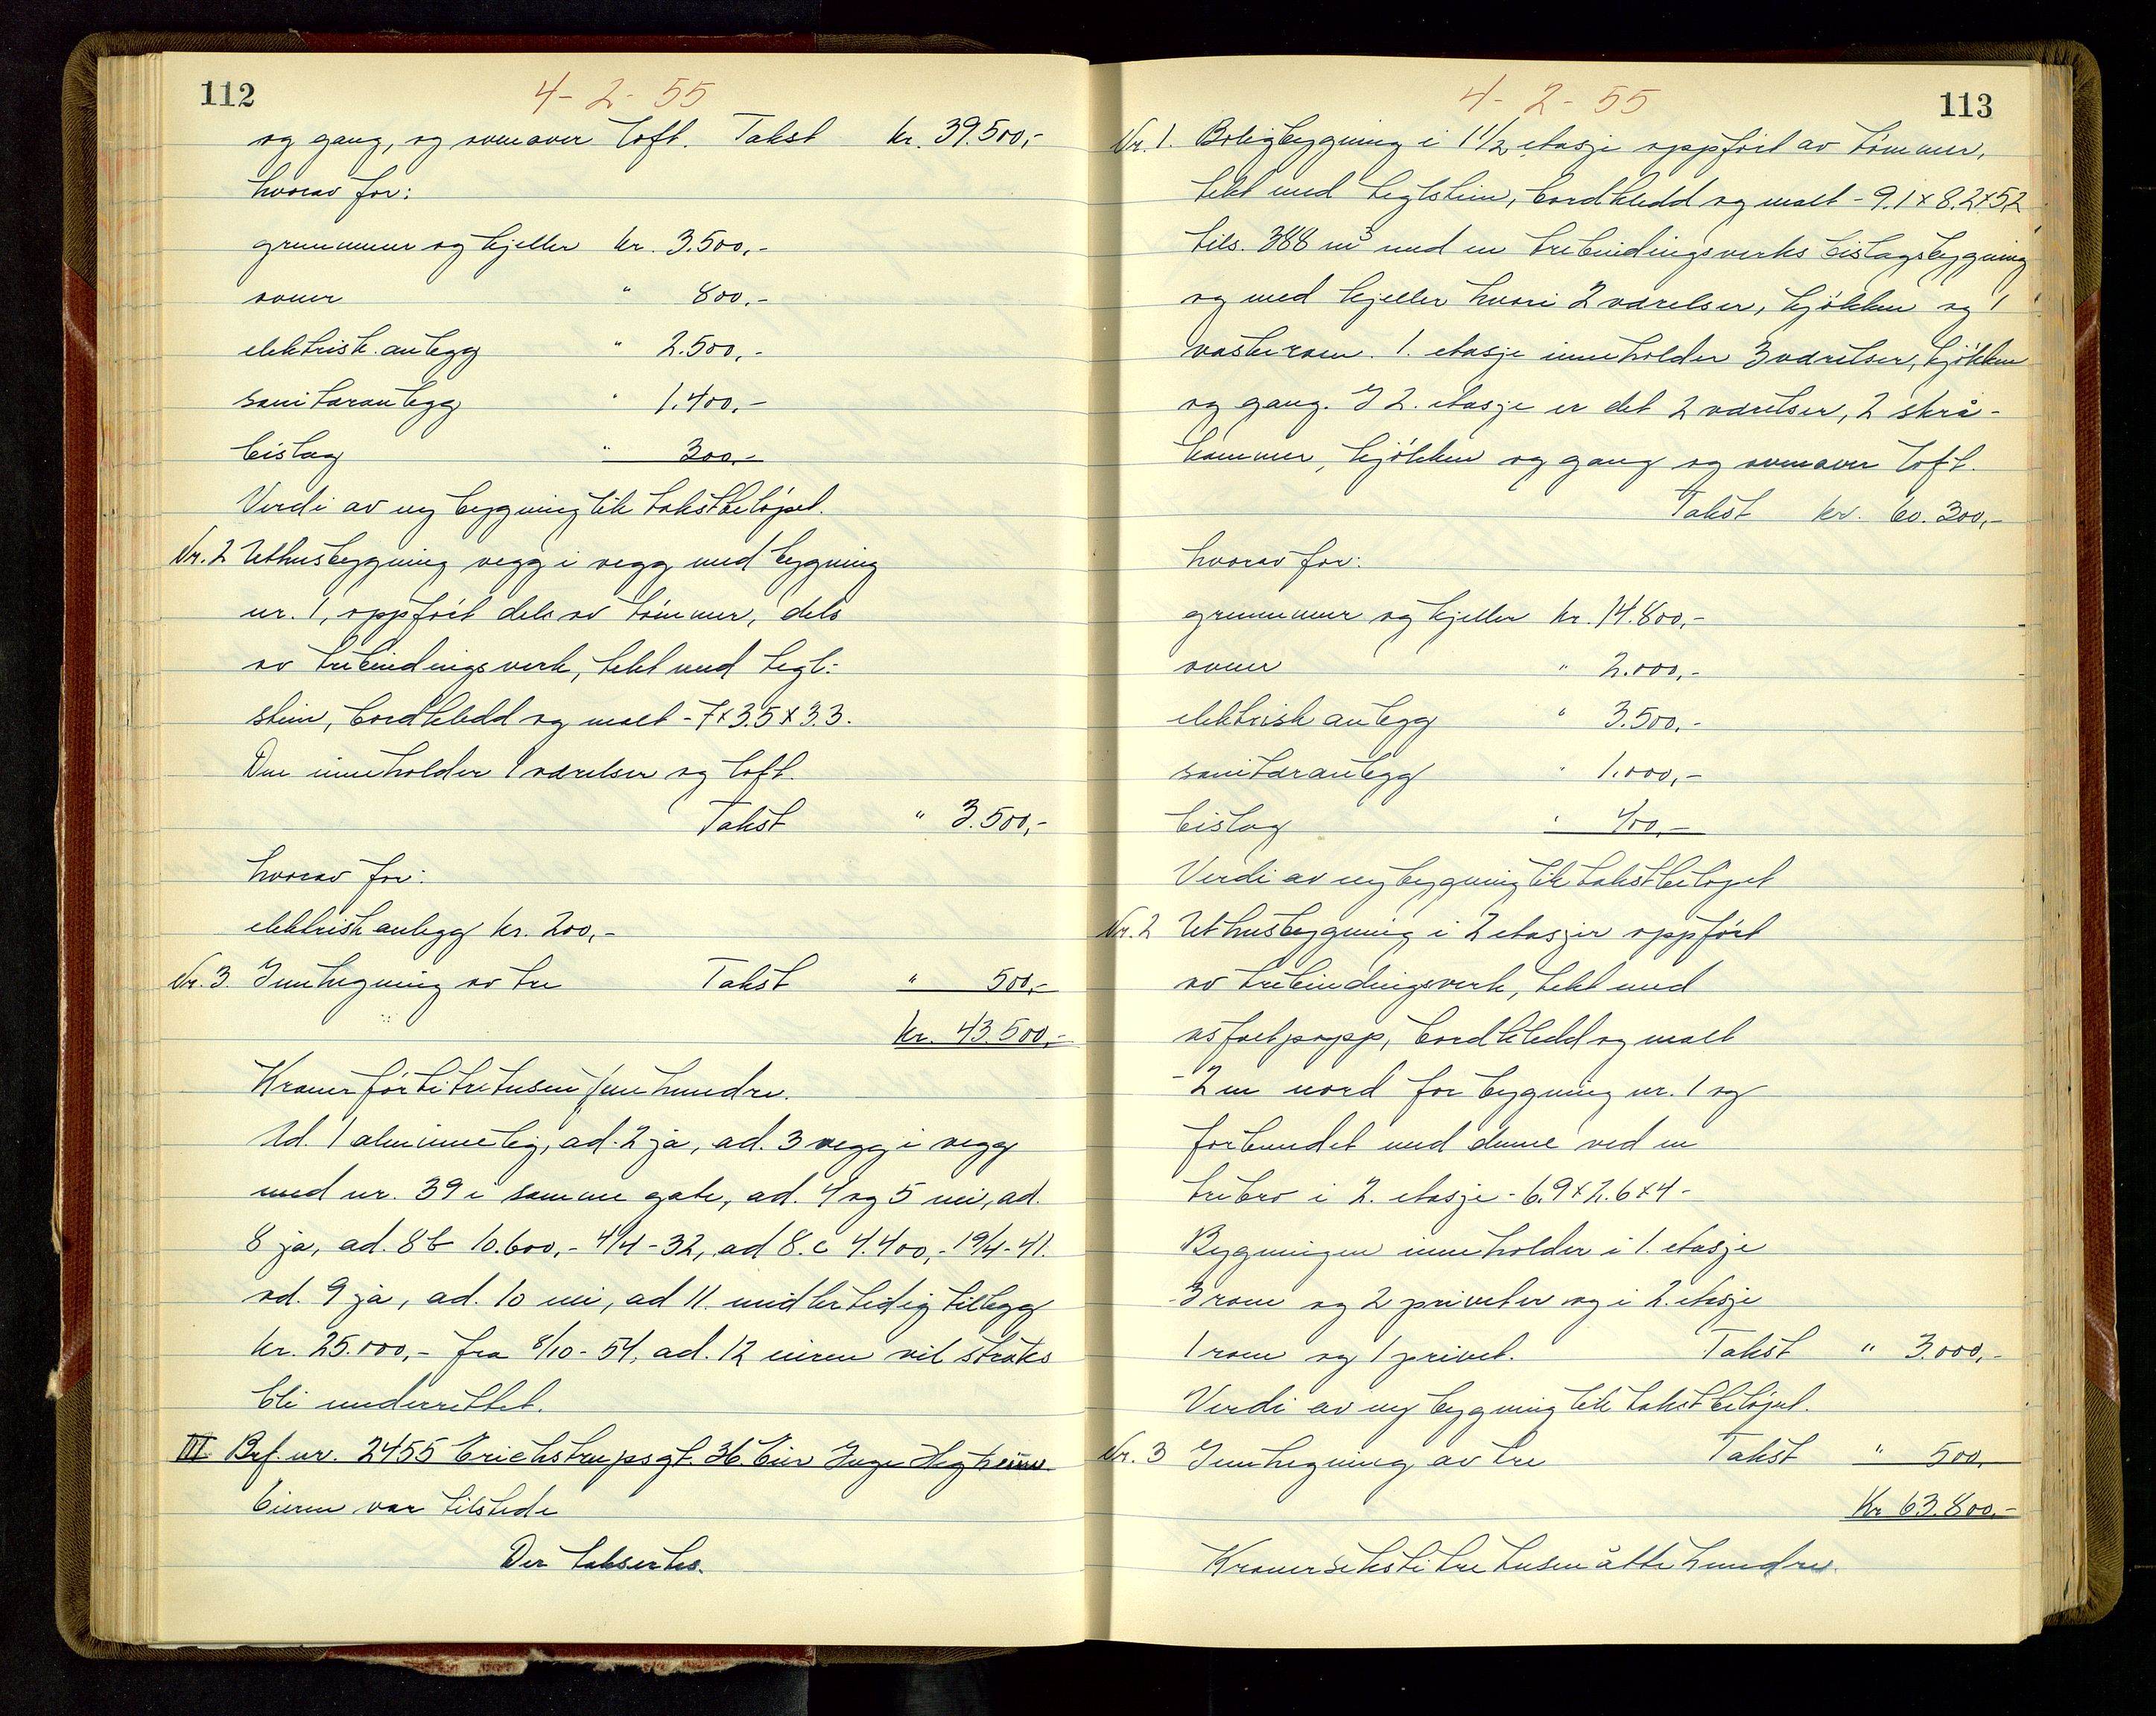 112
4-2-55
og gang, og ovenover loft. Takst kr. 39.500,-
hvorav for:
grunnmur og kjeller kr. 3.500,-
ovner " 800,-
elektrisk anlegg " 2.500,-
sanitæranlegg " 1.400,-
bislag " 300,-
Verdi av ny bygning lik takstbeløpet.
Nr. 2 Uthusbygning vegg i vegg med bygning
nr. 1, oppført dels av tømmer, dels
av trebindingsverk, tekt med tegl-
stein, bordkledd og malt - 7 x 3.5 x 3.3.
Den inneholder 1 værelser og loft.
Takst " 3.500,-
hvorav for:
elektrisk anlegg kr. 200,-
Nr. 3. Innhegning av tre Takst " 500,-
kr. 43.500,-
Kroner førtitretusenfemhundre.
Ad. 1 alminnelig, ad. 2 ja, ad. 3 vegg i vegg
med nr. 39 i samme gate, ad. 4 og 5 nei, ad.
8 ja, ad. 8 b 10.600,- 4/4-32, ad 8.c 4.400,- 19/4-41.
ad. 9 ja, ad. 10 nei, ad 11. midlertidig tillegg
kr. 25.000,- fra 8/10-54, ad. 12 eieren vil straks
bli underrettet.
III Brf. nr. 2455 Erichstrupsgt. 36. Eier Inge Hegheim.
Eieren var tilstede
Der taksertes.
4-2-55
113
Nr. 1. Boligbygning i 1 1/2 etasje oppført av tømmer,
tekt med teglstein, bordkledd og malt - 9.1 x 8.2 x 5.2
tils. 388 m³ med en trebindingsverks bislagsbygning
og med kjeller hvori 2 værelser, kjøkken og 1
vaskerom. 1. etasje inneholder 3 værelser, kjøkken
og gang. I 2. etasje er det 2 værelser, 2 skrå-
kammer, kjøkken og gang og ovenover loft.
Takst kr. 60.300,-
hvorav for:
grunnmur og kjeller kr. 14.800,-
ovner " 2.000,-
elektrisk anlegg " 3.500,-
sanitæranlegg " 1.000,-
bislag " 400,-
Verdi av ny bygning lik takstbeløpet
Nr. 2 Uthusbygning i 2 etasjer oppført
av trebindingsverk, tekt med
asfaltpapp, bordkledd og malt
- 2 m nord for bygning nr. 1 og
forbundet med denne ved en
trebro i 2. etasje - 6.9 x 2.6 x 4 -
Bygningen inneholder i 1. etasje
3 rom og 2 priveter og i 2. etasje
1 rom og 1 privet. Takst " 3.000,-
Verdi av ny bygning lik takstbeløpet.
Nr. 3 Innhegning av tre Takst " 500,-
Kr 63.800,-
Kroner sekstitretusenåttehundre.